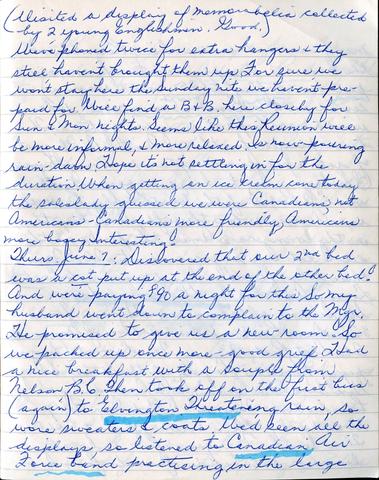 (Visited a display of memorabelia collected
by 2 young Englishmen. Good.)
We've phoned twice for extra hangers & they
still haven't brought them up. For sure we
won't stay here the Sunday nite we haven't pre-
paid for. We'll find a B&B. here closeby for
Sun & Mon nights. Seems like this Reunion will
be more informal, & more relaxed. Is now pouring
rain-damn. Hope it's not settling in for the
duration. When getting an ice kream cone today
the saleslady guessed we were Canadians, not
Americans - Canadians more friendly, Americans
more bossy. Interesting.
Thurs, June 7: Discovered that our 2nd bed
was a cot put up at the end of the other bed!
And we're paying £90 a night for this. So my
husband went down to complain to the Mgr.
He promised to give us a new room. So
we packed up once more - good grief. Had
a nice breakfast with a couple from
Nelson B.C. Then took off on the first bus
(again) to Elvington. Threatening rain, so
wore sweaters & coats. We'd seen all the
displays so listened to Canadian Air
Force band practising in the large